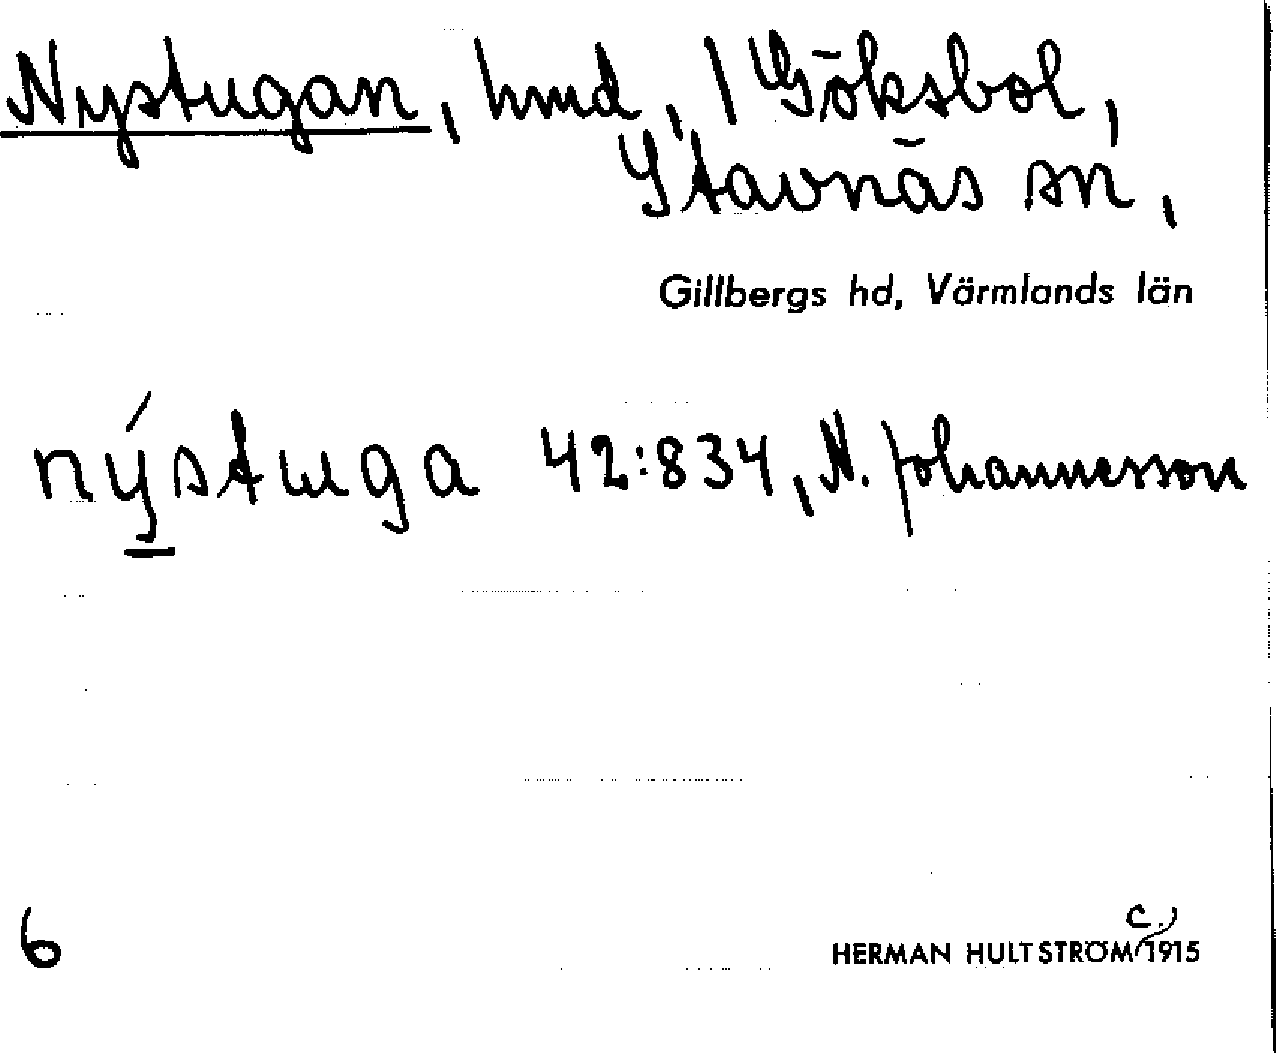 Nystugan, hmd, 1 Göksbol,
Stavnäs sn,
Gillbergs hd, Värmlands län
nýstuga 42:834, N. Johannesson
6
HERMAN HULTSTRÖM C. 1915